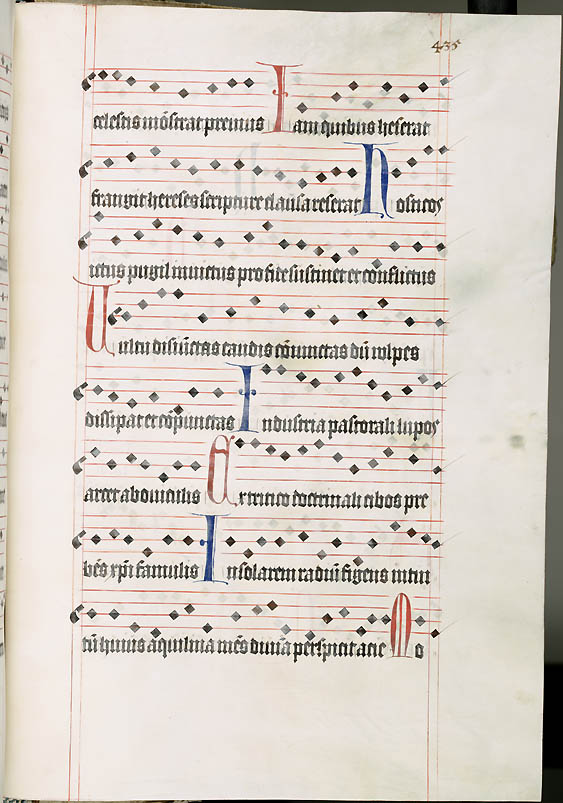 435
celestis mōstrat premiis Iam quibus heserat
frangit hereses scripture clausa reserat Nosticos
ictus pugil inuictus pro fide sustinet et conflictus
Uultu disiūctas caudis cōiunctas dū vulpes
dissipat et cōpunctas Industria pastorali lupos
arcet ab ouiculis Ex tritico doctrinali cibos pre
bēs xp̄i famulis In solarem radiū figens intui
tū huius aquilina mēs diuīa perspicit acie Mo